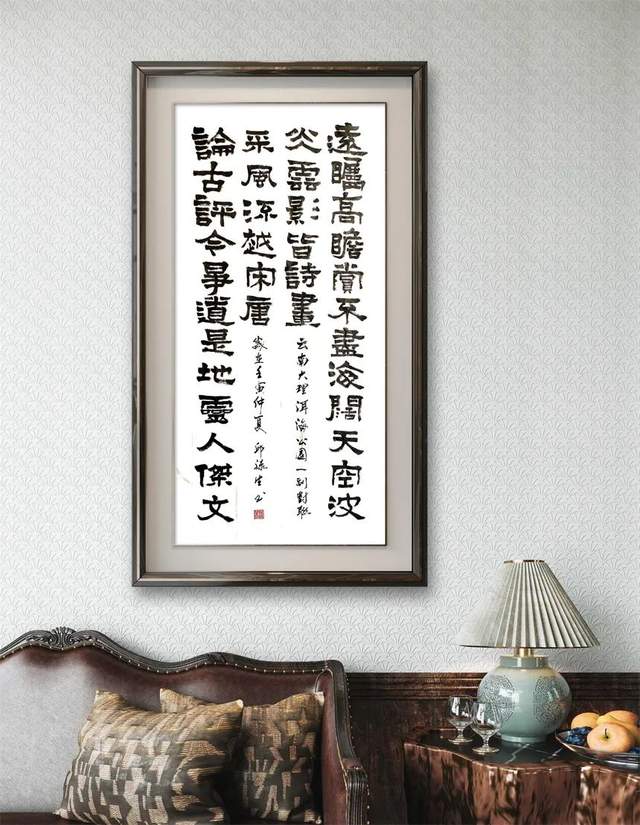 遠矚高瞻賞不盡海闊天空波
光雲影皆詩畫
云南大理洱海公園一副對聯
論古評今爭道是地靈人傑文
采風流越宋唐
歲在壬寅仲夏 邱生书